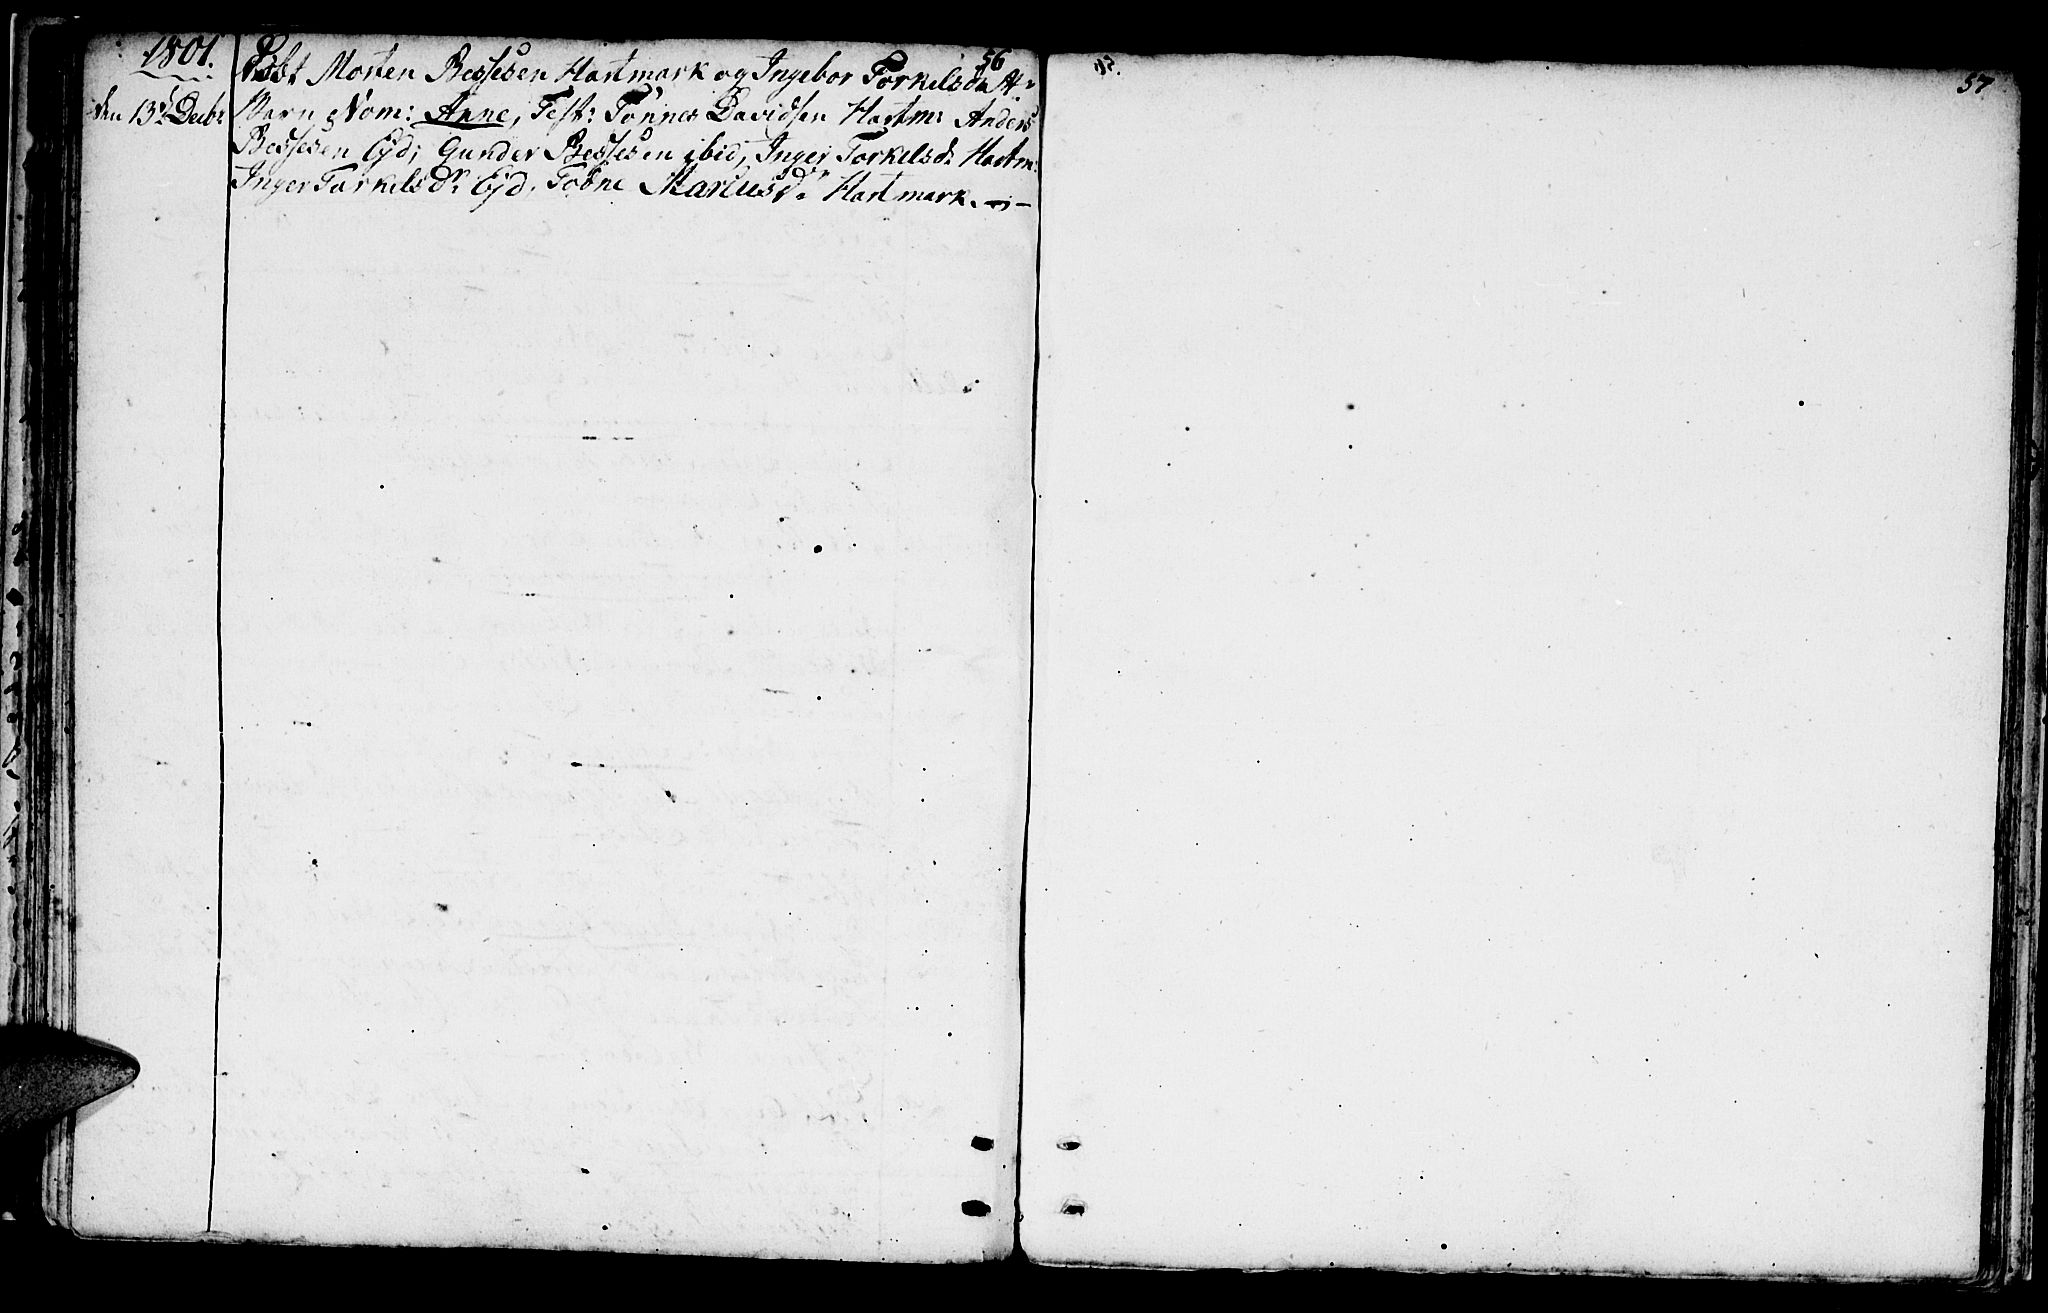 1801.
56
Døbt Morten Bessesen Hartmark og Ingebor Torkelsdr H:
den 13de Decbr Barn Nom: Anne, Test: Tønnes Davidsen Hartm: Anders
Bessesen Eyd; Gunder Bessesen ibid, Inger Torkelsdr Hartm:
Inger Torkelsdr Eyd, Tobne Mariusdr Hartmark.
57